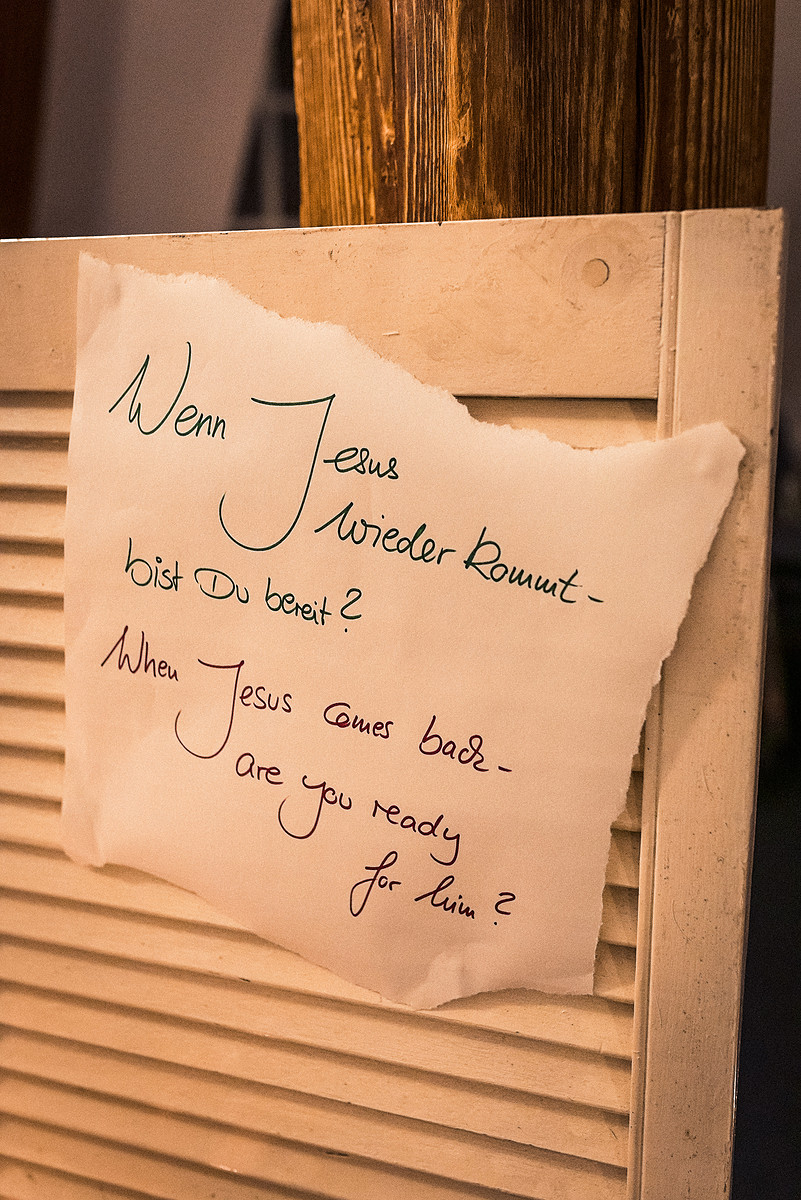 Wenn Jesus
wieder kommt-
bist Du bereit?
When Jesus comes back-
are you ready
for him?